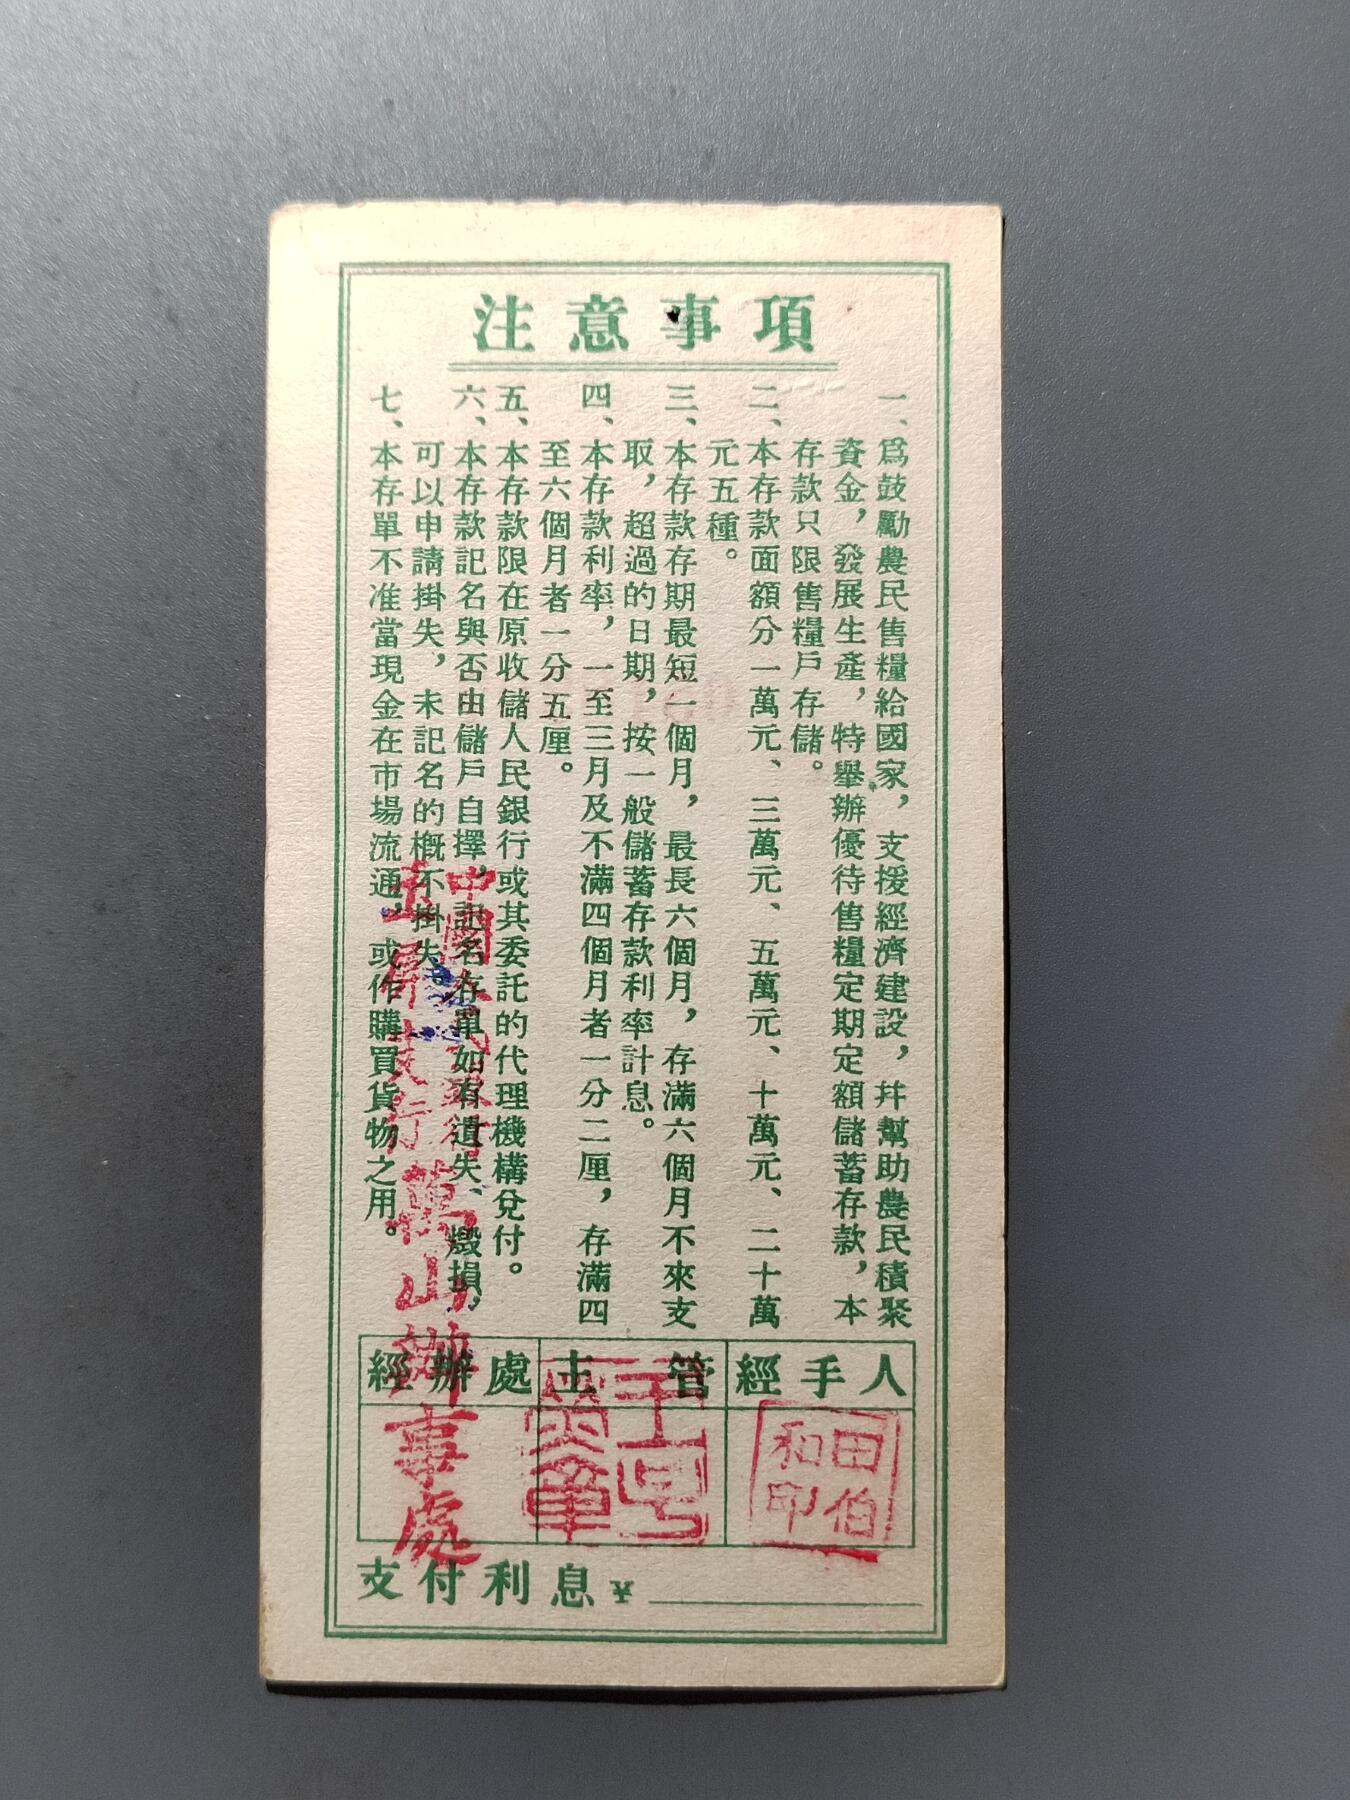 注意事項
一、爲鼓勵農民售糧給國家，支援經濟建設，幷幫助農民積聚
資金，發展生產，特舉辦優待售糧定期定額儲蓄存款，本
存款只限售糧戶存儲。
二、本存款面額分一萬元、三萬元、五萬元、十萬元、二十萬
元五種。
三、本存款存期最短一個月，最長六個月，存滿六個月不來支
取，超過的日期，按一般儲蓄存款利率計息。
四、本存款利率，一至三月及不滿四個月者一分二厘，存滿四
至六個月者一分五厘。
五、本存款限在原收儲人民銀行或其委託的代理機構兌付。
六、本存款記名與否由儲戶自擇，記名存單如有遺失、燬損，
可以申請掛失，未記名的概不掛失。
七、本存單不准當現金在市場流通，或作購買貨物之用。
經辦處 主管 經手人
中國人民銀行
支行萬山辦事處
田伯
和印
支付利息¥